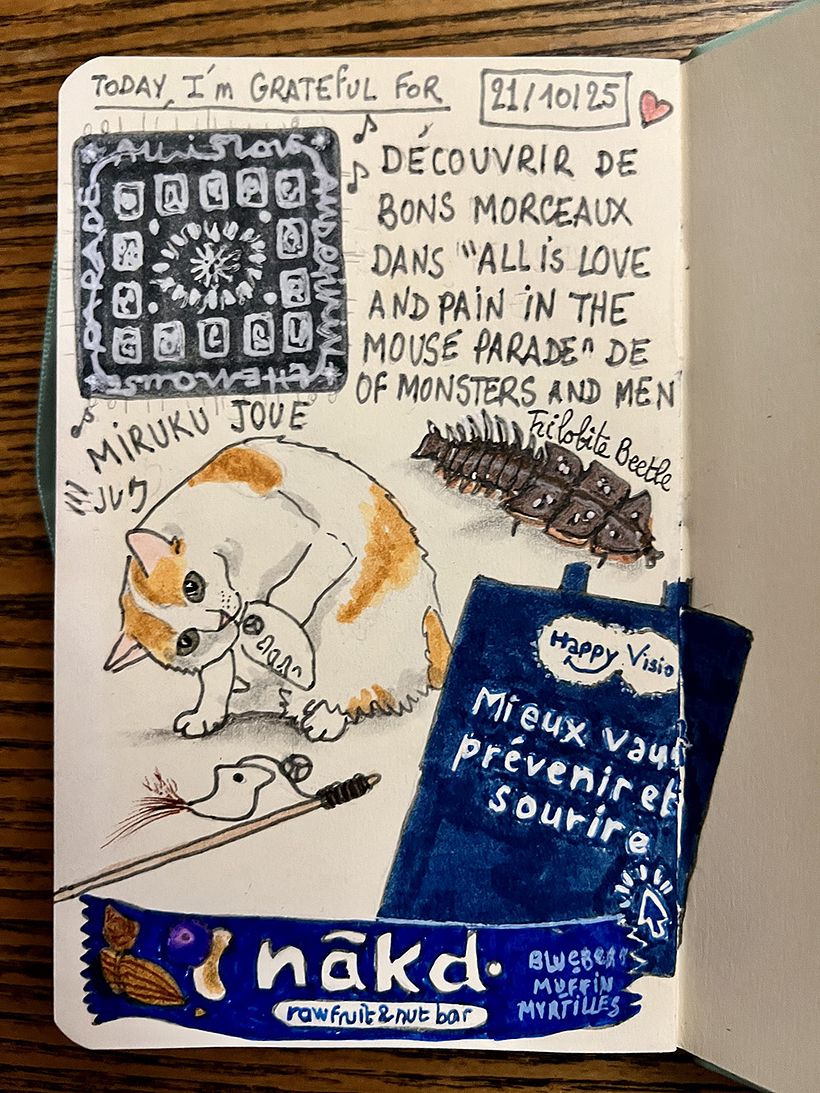 TODAY, I'm GRATEFUL FOR
21/10/25
DÉCOUVRIR DE
BONS MORCEAUX
DANS "ALL iS LOVE
AND PAIN iN THE
MOUSE PARADE" DE
OF MONSTERS AND MEN
All is Love
AND PAIN IN
THE MOUSE
PARADE
MiRUKU JOUE
Trilobite Beetle
Happy Visio
Mieux vaut
prévenir et
sourire
nākd.
raw fruit & nut bar
BLUEBERRY
MUFFIN
MYRTILLES